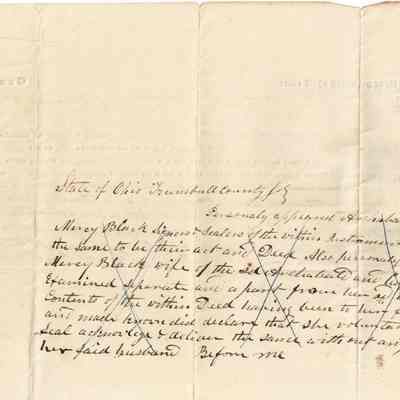 State of Ohio Trumbull County ss
Personaly appeared
Mercy Black Signers & Sealers of the within Instrumen
the same to be their act and Deed Also personaly
Mercy Black wife of the sd and
Examined seperate and a part from her sd
Contents of the within Deed having been to her
and made known did declare that she volunta
seal acknowlege & deliver the same without an
her said husband Before me